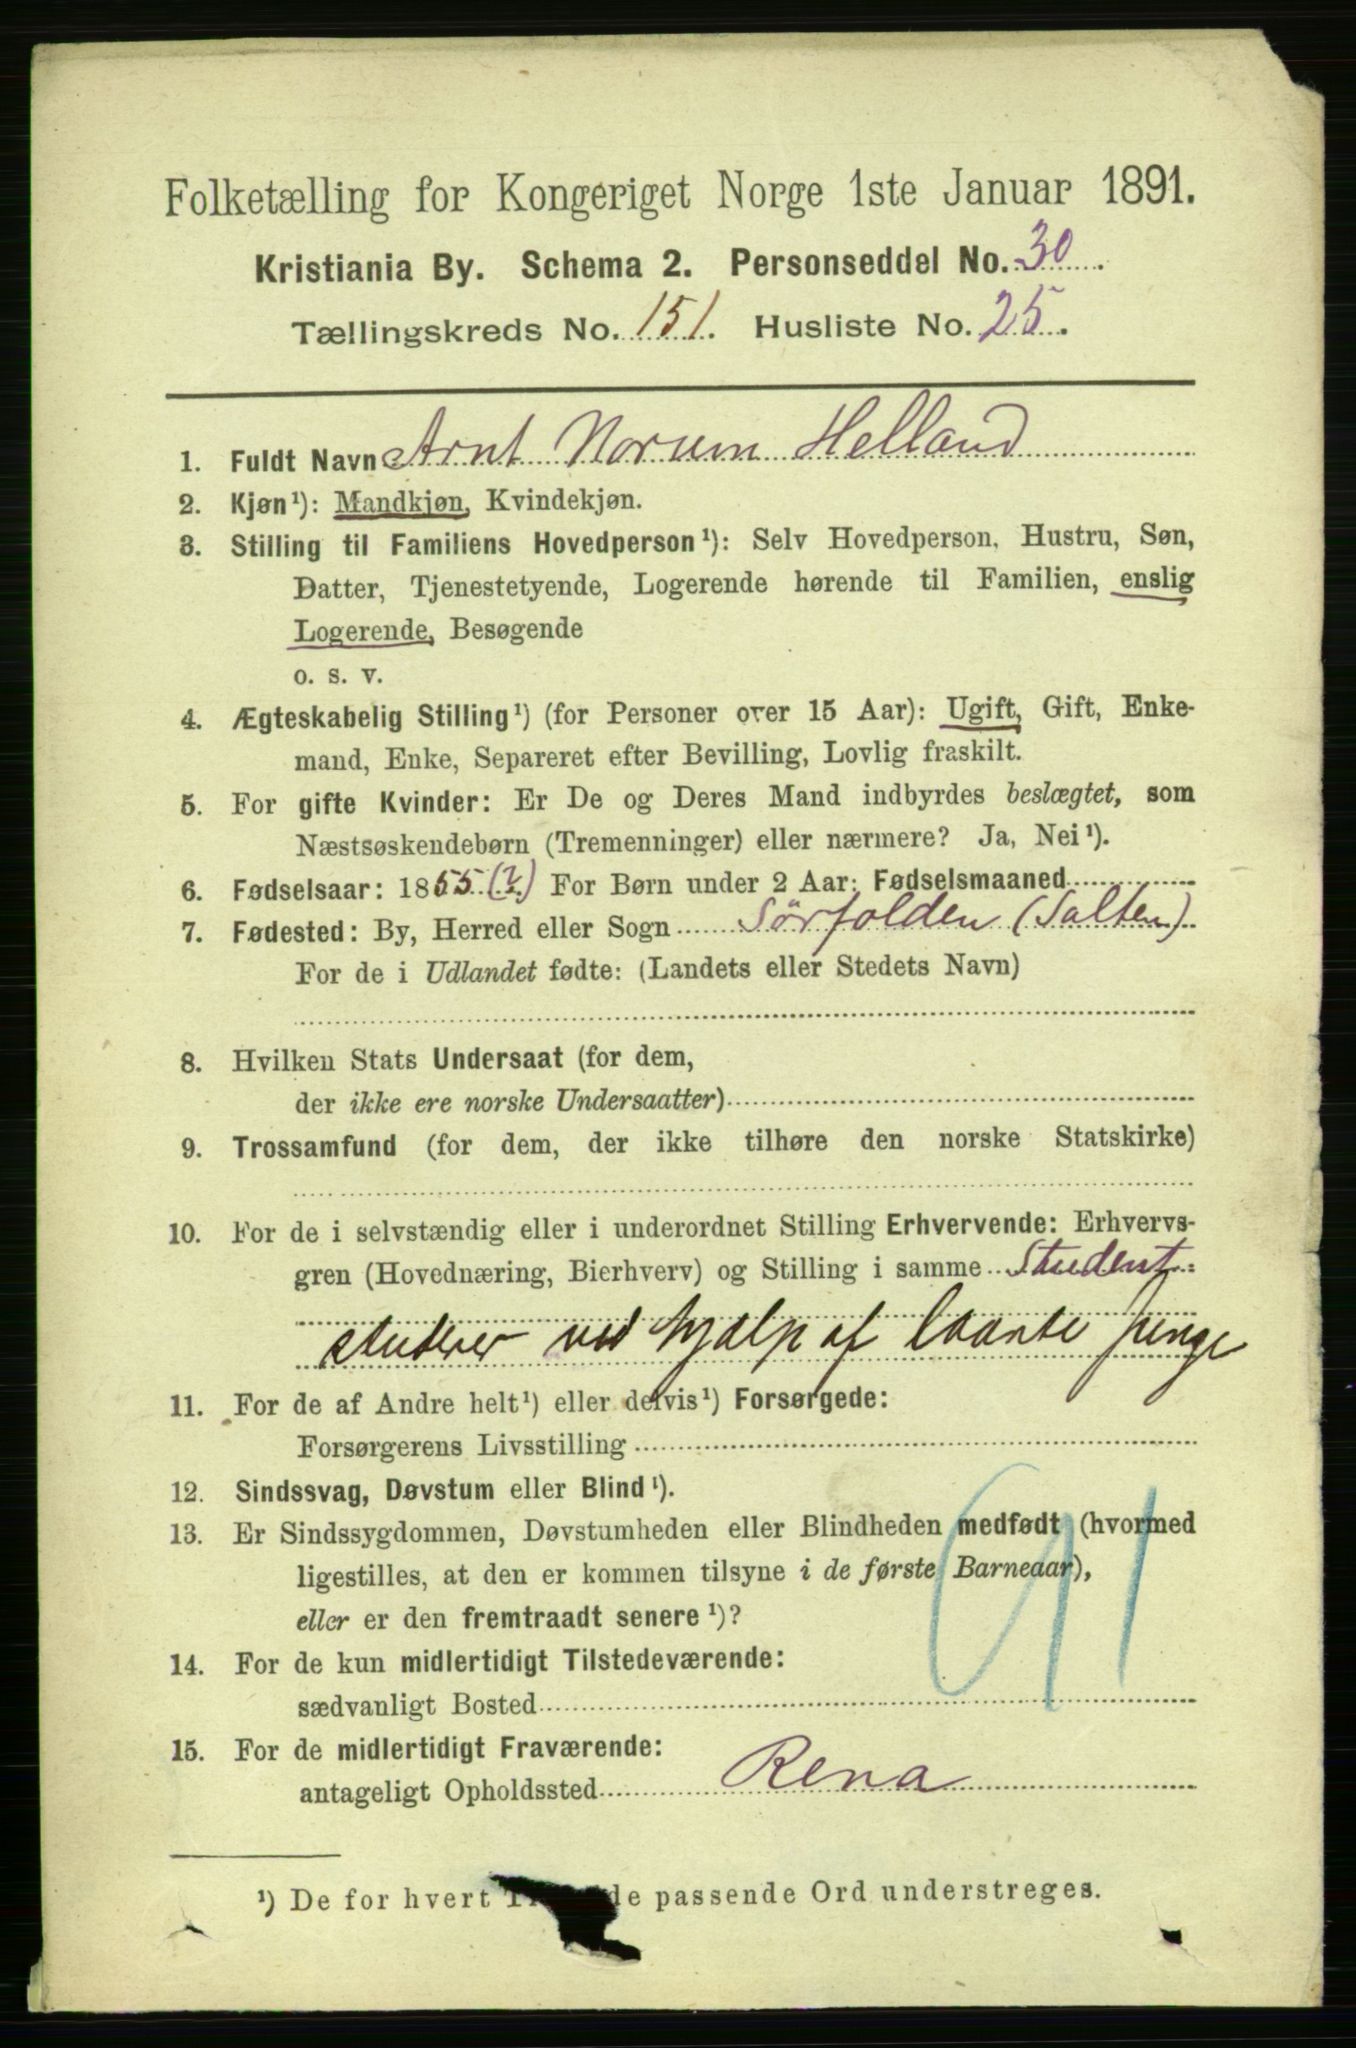 Folketælling for Kongeriget Norge 1ste Januar 1891.
Kristiania By. Schema 2. Personseddel No. 30.
Tællingskreds No. 151. Husliste No. 25.
1. Fuldt Navn Arnt Norum Helland
2. Kjøn¹): Mandkjøn, Kvindekjøn.
3. Stilling til Familiens Hovedperson¹): Selv Hovedperson, Hustru, Søn,
Datter, Tjenestetyende, Logerende hørende til Familien, enslig
Logerende, Besøgende
o. s. v.
4. Ægteskabelig Stilling¹) (for Personer over 15 Aar): Ugift, Gift, Enke-
mand, Enke, Separeret efter Bevilling, Lovlig fraskilt.
5. For gifte Kvinder: Er De og Deres Mand indbyrdes beslægtet, som
Næstsøskendebørn (Tremenninger) eller nærmere? Ja, Nei¹).
6. Fødselsaar: 1855 (?) For Børn under 2 Aar: Fødselsmaaned
7. Fødested: By, Herred eller Sogn Sörfolden (Salten)
For de i Udlandet fødte: (Landets eller Stedets Navn)
8. Hvilken Stats Undersaat (for dem,
der ikke ere norske Undersaatter)
9. Trossamfund (for dem, der ikke tilhøre den norske Statskirke)
10. For de i selvstændig eller i underordnet Stilling Erhvervende: Erhvervs-
gren (Hovednæring, Bierhverv) og Stilling i samme Student:
studerer ved hjælp af laante penge
11. For de af Andre helt¹) eller delvis¹) Forsørgede:
Forsørgerens Livsstilling
12. Sindssvag, Døvstum eller Blind¹).
13. Er Sindssygdommen, Døvstumheden eller Blindheden medfødt (hvormed
ligestilles, at den er kommen tilsyne i de første Barneaar),
eller er den fremtraadt senere¹)?
14. For de kun midlertidigt Tilstedeværende:
sædvanligt Bosted
91
15. For de midlertidigt Fraværende:
antageligt Opholdssted Rena
¹) De for hvert de passende Ord understreges.